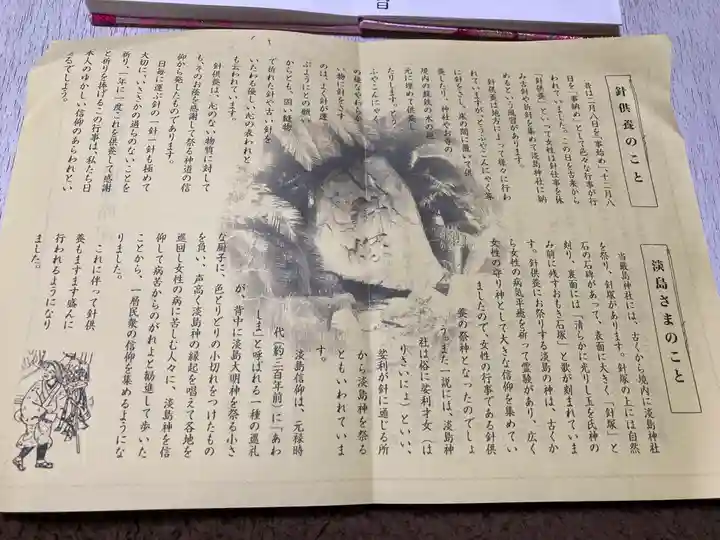 針供養のこと
昔は二月八日を「事始め」、十二月八
日を「事納め」として色々な行事が行
われていました。この日を古来から
「針供養」といって女性は針仕事を休
み古針や折針を集めて淡島神社に納
めるという風習があります。
針供養は地方によって様々に行わ
れていますが、とうふやこんにゃく等
に針をさし、床の間に置いて供
養したり、神社やお寺の
境内の
元に埋めて供養し
たりします。とう
ふやこんにゃく
の様なやわらか
い物に針をさす
のは、よく針が運
ぶようにとの願い
からとも、固い縫物
で折れた針や古い針を
いたわる優しい心の表われと
も云われています。
針供養は、心のない物質に対して
も、そのお徳を感謝して祭る神道の信
仰から発したものであります。
日毎に運ぶ針の一針一針も極めて
大切に、いささかの過ちのないことを
祈り、一年に一度これを供養して感謝
と祈りを捧げるこの行事は、私たち日
本人のゆかしい信仰のあらわれとい
えるでしょう。
淡島さまのこと
当厳島神社には、古くから境内に淡島神社
を祭り、針塚があります。針塚の上には自然
石の石碑があって、表面に大きく「針塚」と
刻り、裏面には「清らかに光りし玉を氏神の
み前に残すおしき石塚」と歌が刻まれていま
す。針供養にお祭りする淡島の神は、古くか
ら女性の病気平癒を祈って霊験があり、広く
女性の守り神として大きな信仰を集めてい
ましたので、女性の行事である針供
養の祭神となったのでしょ
う。また一説には、淡島神
社は俗に娑利才女（は
りさいにょ）といい、
娑利が針に通じる所
から淡島神を祭る
ともいわれていま
す。
淡島信仰は、元禄時
代（約三百年前）に「あわ
しま」と呼ばれる一種の巡礼
が、背中に淡島大明神を祭る小さ
な厨子に、色とりどりの小切れをつけたもの
を負い、声高く淡島神の縁起を唱えて各地を
巡回し女性の病に苦しむ人々に、淡島神を信
仰して病苦からのがれよと勧進して歩いた
ことから、一層民衆の信仰を集めるようにな
りました。
これに伴って針供
養もますます盛んに
行われるようになり
ました。